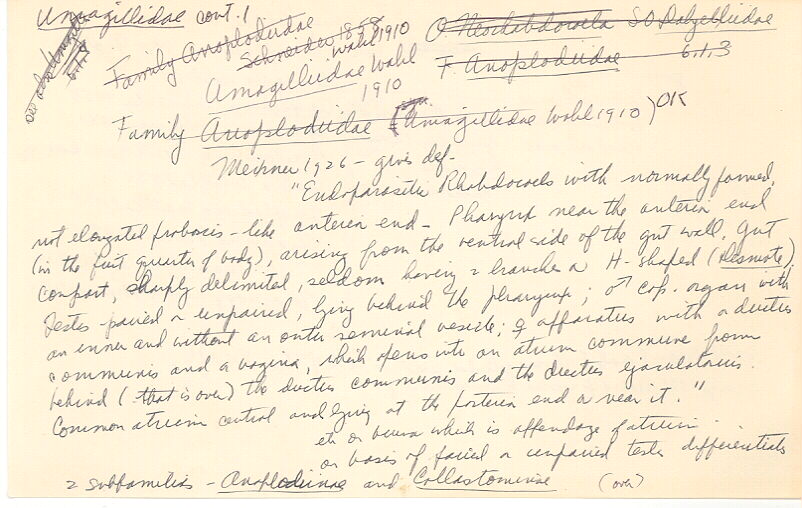 Umagillidae cont. 1
See also Umagill 6.1.1
O. Neorhabdocoela SO Dalyelliidae
Family Anoplodiidae
Schneider 1858
Wahl 1910
F. Anoplodiidae 6.1.3
Umagillidae Wahl 1910
Family Anoplodiidae (Umagillidae Wahl 1910) OK
Meixner 1926 - gives def.
"Endoparasitic Rhabdocoels with normally formed,
not elongated proboscis-like anterior end - Pharynx near the anterior end
(in the first quarter of body), arising from the ventral side of the gut wall. Gut
compact, sharply delimited, seldom having 2 branches or H-shaped (Desmote).
Testes paired or unpaired, lying behind the pharynx; ♂ cop. organ with
an inner and without an outer seminal vesicle; ♀ apparatus with a ductus
communis and a vagina, which opens into an atrium commune from
behind (that is over) the ductus communis and the ductus ejaculatorius.
Common atrium central and lying at the posterior end or near it."
or bursa which is appendage of atrium
on basis of paired or unpaired testes differentials
2 subfamilies - Anoplodiinae and Collastominae (over)